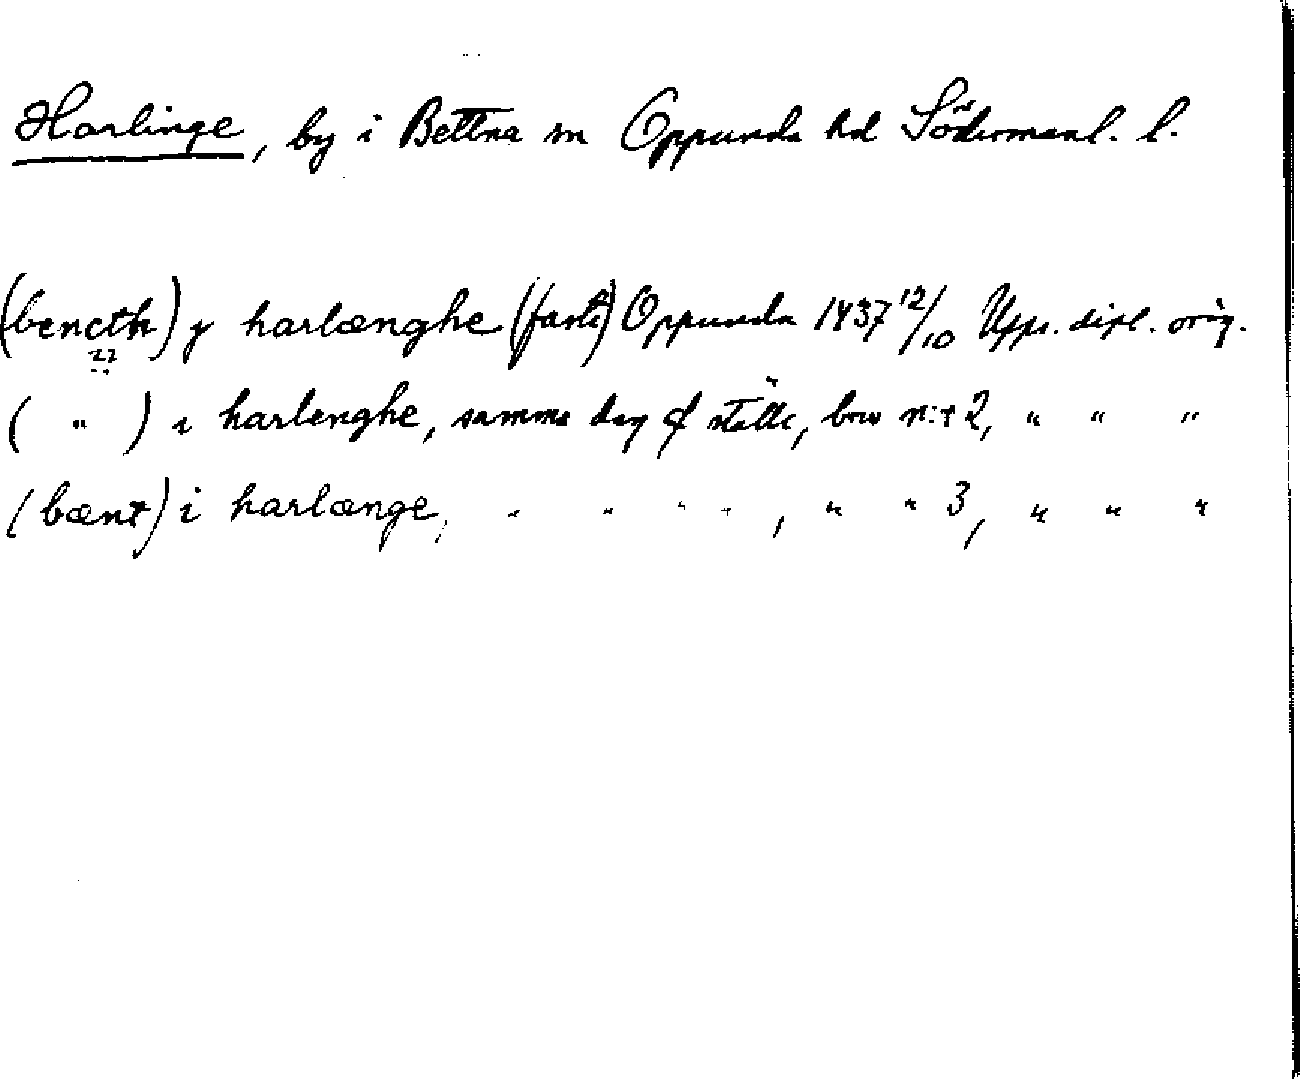 Harlinge, by i Bettna sn Oppunda hd Södermanl. l.
(bencth) y harlænghe (fasti) Oppunda 1437 12/10 Upps. dipl. orig.
( " ) i harlenghe, samma dag & ställe, brev nr 2, " " "
(bænt) i harlænge, " " " " , " " 3, " " "